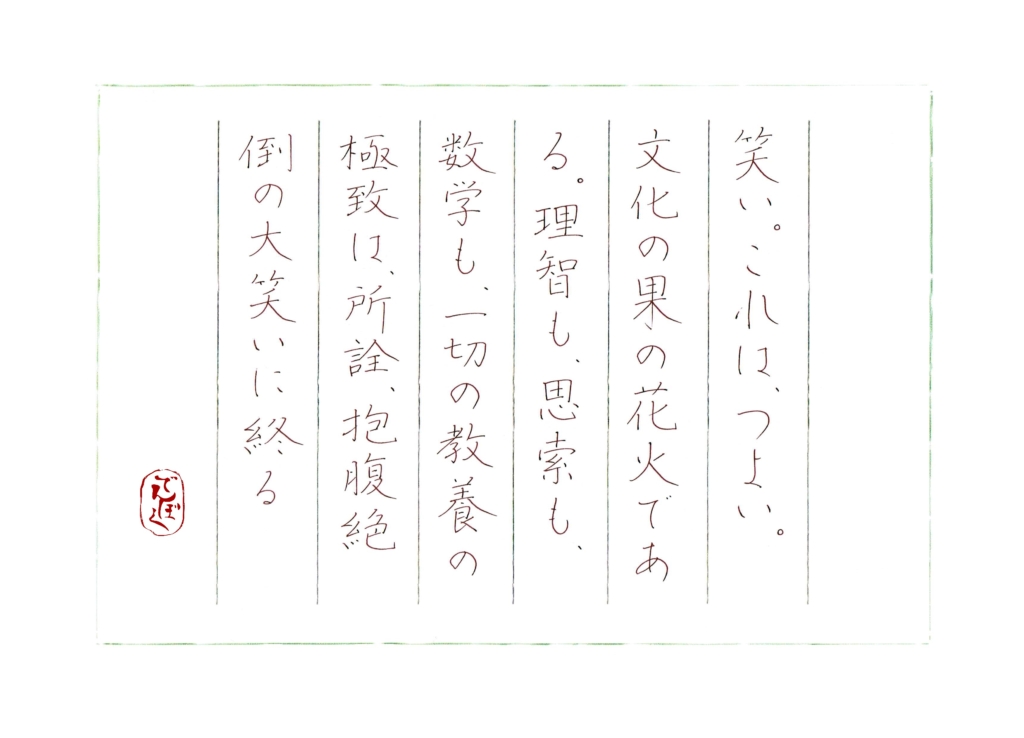 笑い。これは、つよい。
文化の果の花火であ
る。理智も、思索も、
数学も、一切の教養の
極致は、所詮、抱腹絶
倒の大笑いに終る
でんぼく